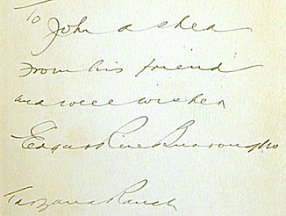 To
John A Shea
From his friend
and well wisher
Edgar Rice Burroughs
Tarzana Ranch